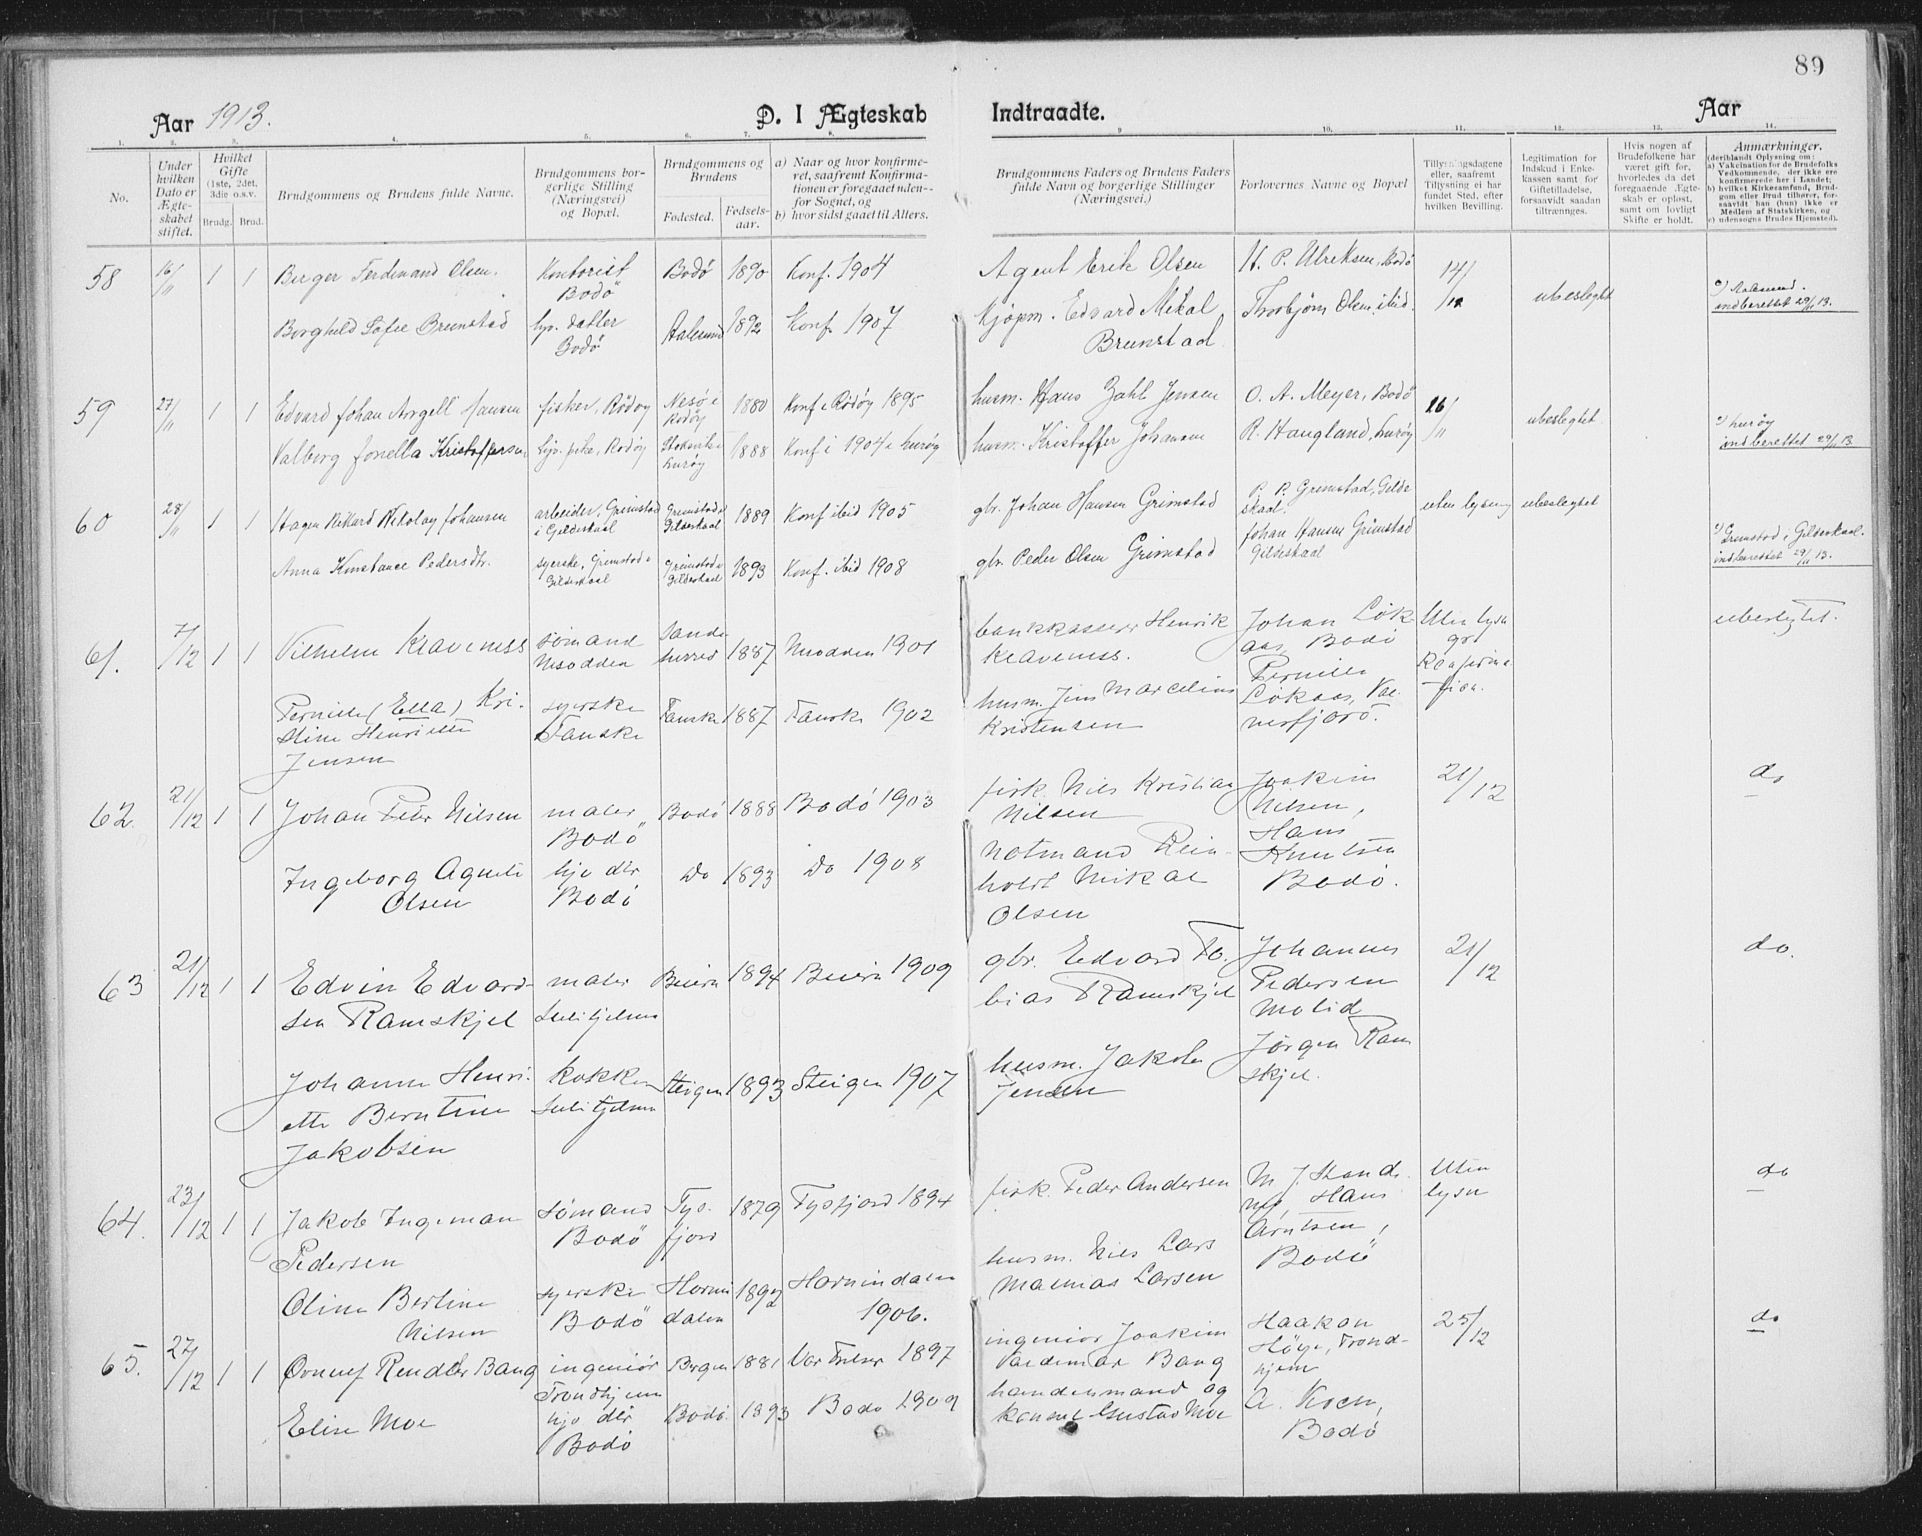 89
Aar 1913.
D. I Ægteskab
Indtraadte.
Aar
1. 2. 3. 4. 5. 6. 7. 8. 9 10. 11. 12. 13. 14.
No.
Under hvilken Dato er Ægteskabet stiftet.
Hvilket Gifte (1ste, 2det, 3die o.s.v.
Brudg. Brud.
Brudgommens og Brudens fulde Navne.
Brudgommens borgerlige Stilling (Næringsvei) og Bopæl.
Brudgommens og Brudens
Fødested.
Fødselsaar.
a) Naar og hvor konfirmeret, saafremt Konfirmationen er foregaaet udenfor Sognet, og
b) hvor sidst gaaet til Alters.
Brudgommens Faders og Brudens Faders fulde Navn og borgerlige Stillinger (Næringsvei.)
Forlovernes Navne og Bopæl
Tillysningsdagene eller, saafremt Tillysning ei har fundet Sted, efter hvilken Bevilling.
Legitimation for Indskud i Enkekassen samt for Giftetilladelse, forsaavidt saadan tiltrænges.
Hvis nogen af Brudefolkene har været gift før, hvorledes da det foregaaende Ægteskab er opløst, samt om lovligt Skifte er holdt.
Anmærkninger.
(deriblandt Oplysning om:
a) Vakcination for de Brudefolks Vedkommende, der ikke ere konfirmerede her i Landet;
b) hvilket Kirkesamfund, Brudgom eller Brud tilhører, forsaavidt han (hun) ikke er Medlem af Statskirken, og
c) udensogns Brudes Hjemsted).
58 16/11 1 1 Berger Ferdinand Olsen. Kontorist Bodö Bodö 1890 Konf. 1904 Agent Erik Olsen H. P. Ulriksen, Bodö 14/11 ubeslegtet c) Aalesund. indberettet 29/11 13.
Borghild Sofie Brunstad hjv. datter Bodö Aalesund 1892 Konf. 1907 Kjøpm. Edvard Mikal Brunstad Thorbjörn Olsen, ibid.
59 27/11 1 1 Edvard Johan Angell Hansen fisker, Rödöy Nesö i Rödöy 1880 Konf i Rödöy 1895 husm. Hans Zahl Jensen O. A. Meyer, Bodö 16/11 ubeslegtet c) Luröy indberettet 29/11 13
Valborg Jonella Kristoffersen hjv. pike, Rödöy Luröy 1888 Konf i 1904 i Luröy husm. Kristoffer Johansen R. Haugland, Luröy
60 28/11 1 1 Hagen Rikard Nikolay Johansen arbeider, Grimstad i Gildeskaal Grimstad i Gildeskaal 1889 Konf ibid 1905 gbr. Johan Hansen Grimstad P. P. Grimstad, Gildeskaal. uten lysning ubeslegtet c) Grimstad i Gildeskaal. indberettet 29/11 13.
Anna Konstance Pedersdtr. syerske, Grimstad i Gildeskaal Grimstad i Gildeskaal 1893 Konf. ibid 1908 gbr. Peder Olsen Grimstad Johan Hansen Grimstad Gildeskaal
61. 7/12 1 1 Vilhelm Klaveness sømand Nesodden Sandeherred 1887 Nesodden 1901 bankkasserer Henrik Klaveness. Johan Løkaas Bodø Uten lysn ubeslegtet.
Pernille (Ella) Kristine Henriette Jensen syerske Fauske Fauske 1887 Fauske 1902 husm. Jens Marcelius Kristensen Pernille Løkaas, Valnesfjord.
62. 21/12 1 1 Johan Peder Nilsen maler Bodö Bodø 1888 Bodø 1903 fisk. Nils Kristian Nilsen Joakim Nilsen, 21/12 do
Ingeborg Agnete Olsen hjv dtr Bodø Do 1893 Do 1908 notmand Reinholdt Mikal Olsen Hans Knutsen Bodø.
63 21/12 1 1 Edvin Edvardsen Ramskjel maler Sulitjelma Beiern 1894 Beiern 1909 gbr. Edvard Tobias Ramskjel Johannes Pedersen Molid 21/12 do.
Johanna Henriette Berntine Jakobsen kokke Sulitjelma Steigen 1893 Steigen 1907 husm. Jakob Jensen Jørgen Ramskjel.
64. 23/12 1 1 Jakob Ingeman Pedersen sømand Bodö Tysfjord 1879 Tysfjord 1894 fisk. Peder Andersen Uten lysn do
Oline Bertine Nilsen syerske Bodö Hornindalen 1892 Hornindalen 1906. husm. Nils Lars Larsen Hans Arntsen, Bodö
65. 27/12 1 1 Ørnulf Rendtler Bang ingeniør Trondhjem Bergen 1881 Vor Frelser 1897 ingeniør Joakim Valdemar Bang Haakon Høye, Trondhjem 25/12 do
Elise Moe hjv dtr Bodø Bodø 1893 Bodø 1909 handelsmand og konsul Gustav Moe A. Koch, Bodø